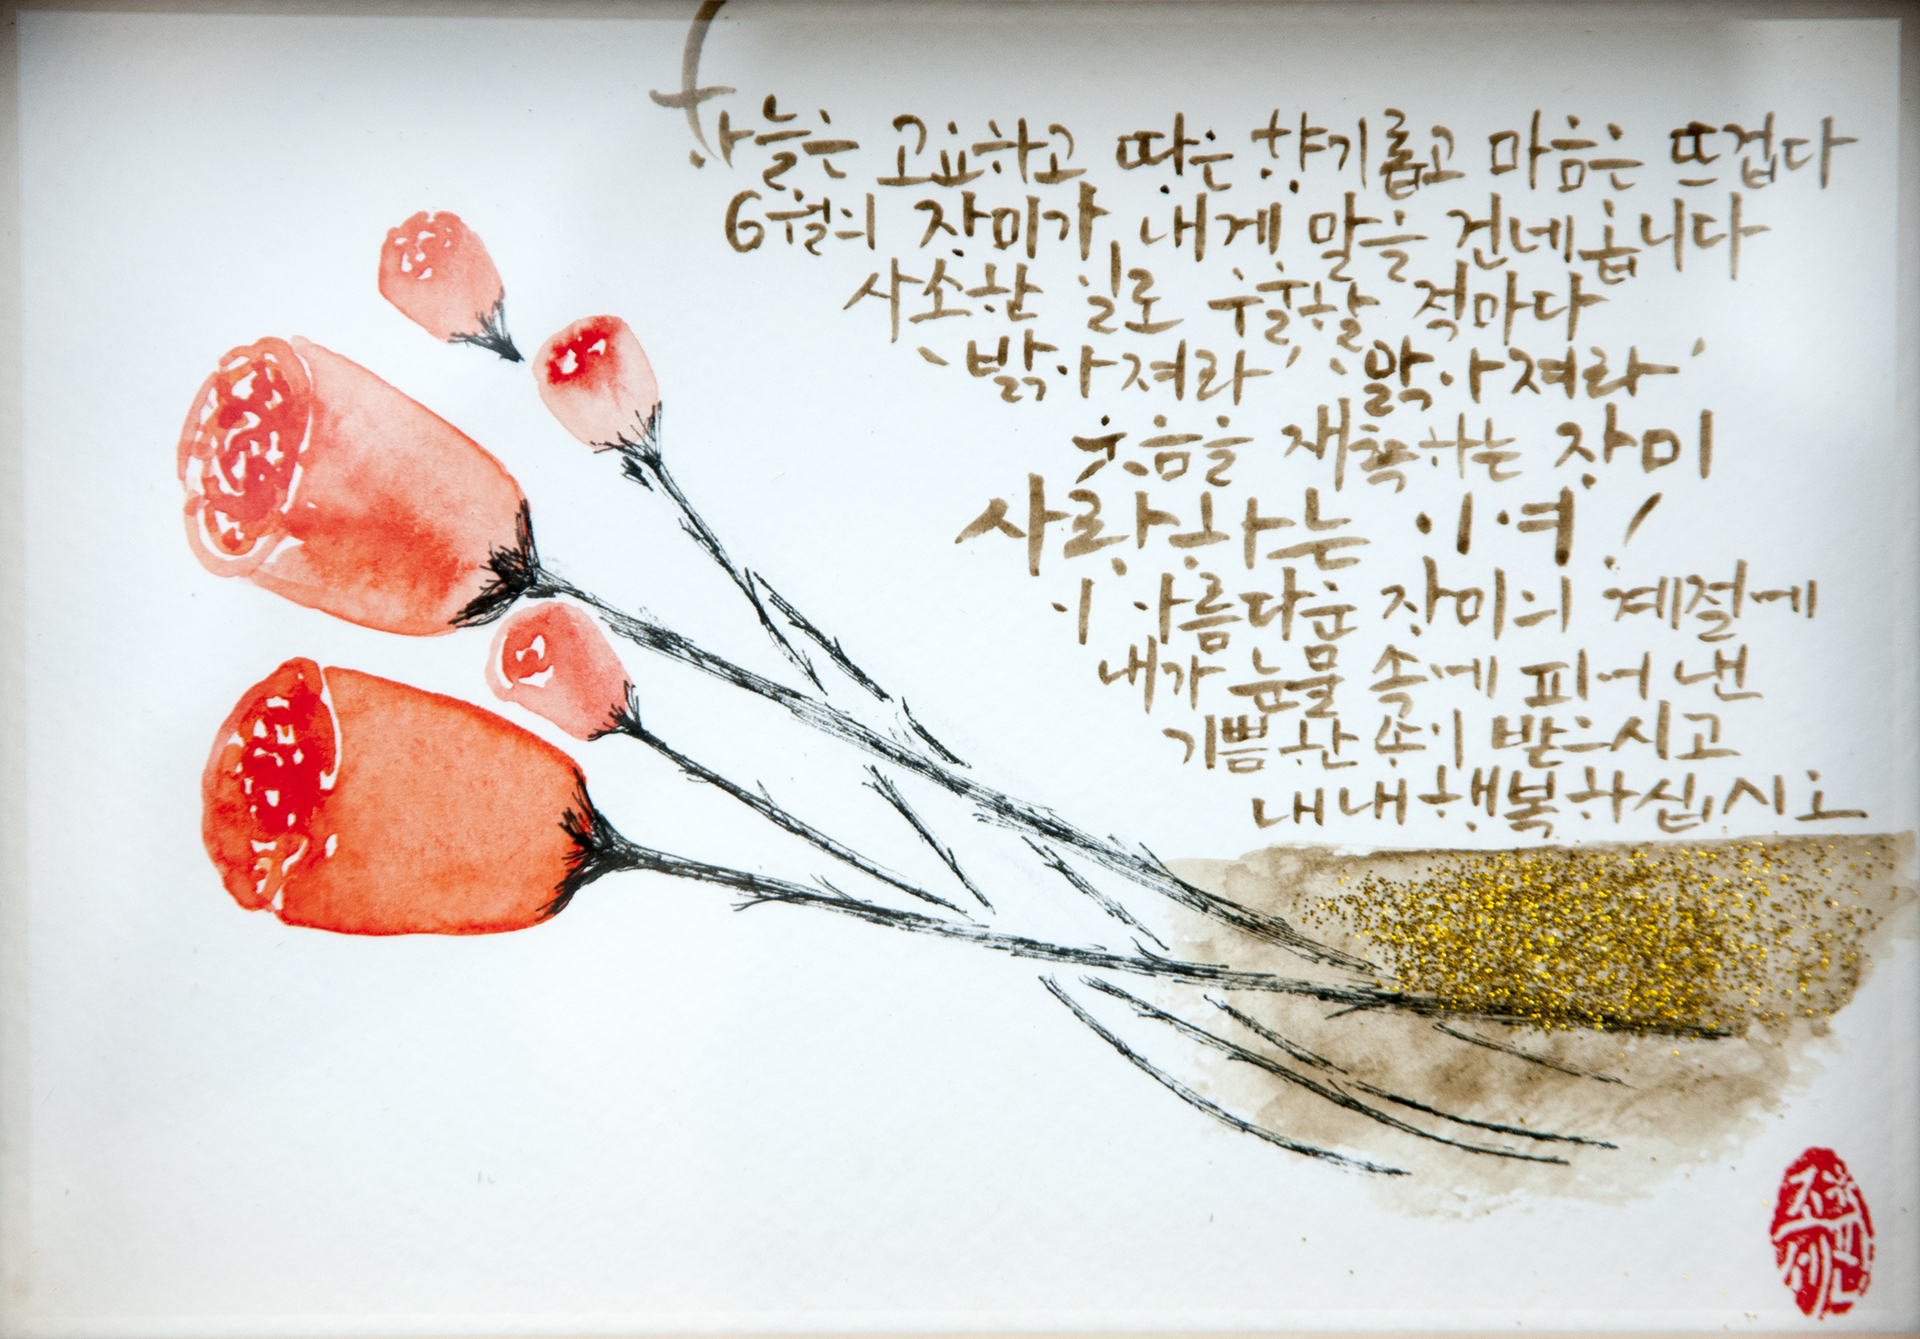 하늘은 고요하고 땅은 향기롭고 마음은 뜨겁다
6월의 장미가 내게 말을 건네옵니다
사소한 일로 우울할 적마다
'밝아져라' '맑아져라'
웃음을 재촉하는 장미
사랑하는 이여!
이 아름다운 장미의 계절에
내가 눈물 속에 피어 낸
기쁨 한 송이 받으시고
내내 행복하십시오